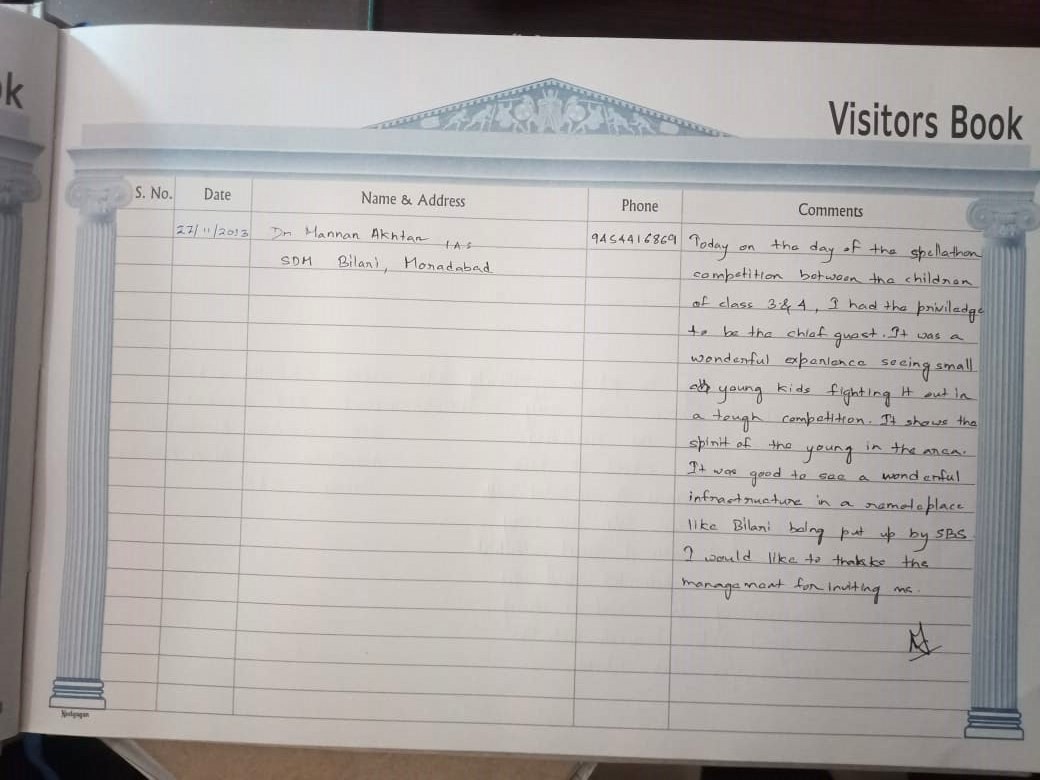 k
Visitors Book
S. No. Date Name & Address Phone Comments
27/11/2013 Dr Mannan Akhtar IAS 9454416869 Today on the day of the spellathon
SDM Bilari, Moradabad competition between the children
of class 3 & 4, I had the priviledge
to be the chief guest. It was a
wonderful experience seeing small
young kids fighting it out in
a tough competition. It shows the
spirit of the young in the area.
It was good to see a wonderful
infrastructure in a remote place
like Bilari being put up by SBS
I would like to the
management for inviting me.
Navgagan